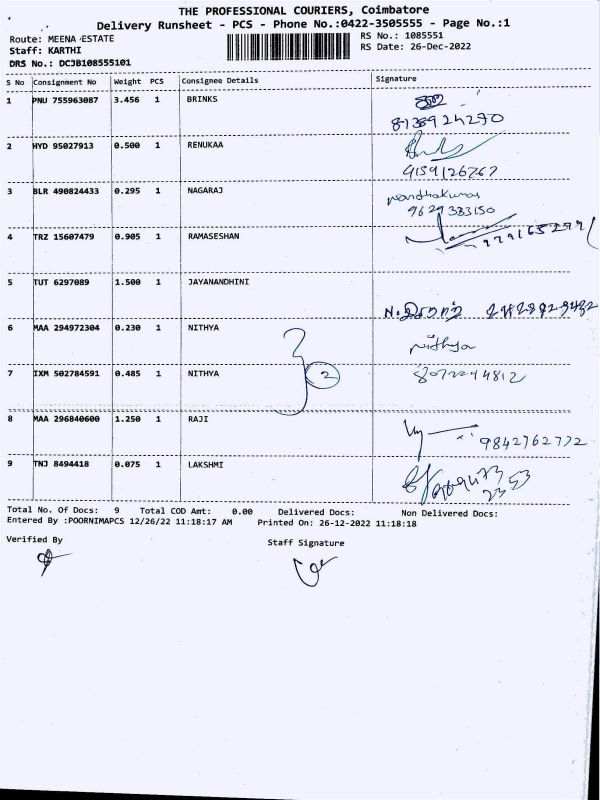 THE PROFESSIONAL COURIERS, Coimbatore
Delivery Runsheet - PCS - Phone No.:0422-3505555 - Page No.:1
Route: MEENA ESTATE RS No.: 1085551
Staff: KARTHI RS Date: 26-Dec-2022
DRS No.: DCJB108555101
S No Consignment No Weight PCS Consignee Details Signature
1 PNU 755963087 3.456 1 BRINKS
2 HYD 95027913 0.500 1 RENUKAA
4159126767
3 BLR 490824433 0.295 1 NAGARAJ
Nandhakumar
9629383150
4 TRZ 15607479 0.905 1 RAMASESHAN
5 TUT 6297089 1.500 1 JAYANANDHINI
6 MAA 294972304 0.230 1 NITHYA
Nithya
7 IXM 502784591 0.485 1 NITHYA 2
8072244812
8 MAA 296840600 1.250 1 RAJI
9842762772
9 TNJ 8494418 0.075 1 LAKSHMI
Total No. Of Docs: 9 Total COD Amt: 0.00 Delivered Docs: Non Delivered Docs:
Entered By :POORNIMAPCS 12/26/22 11:18:17 AM Printed On: 26-12-2022 11:18:18
Verified By Staff Signature